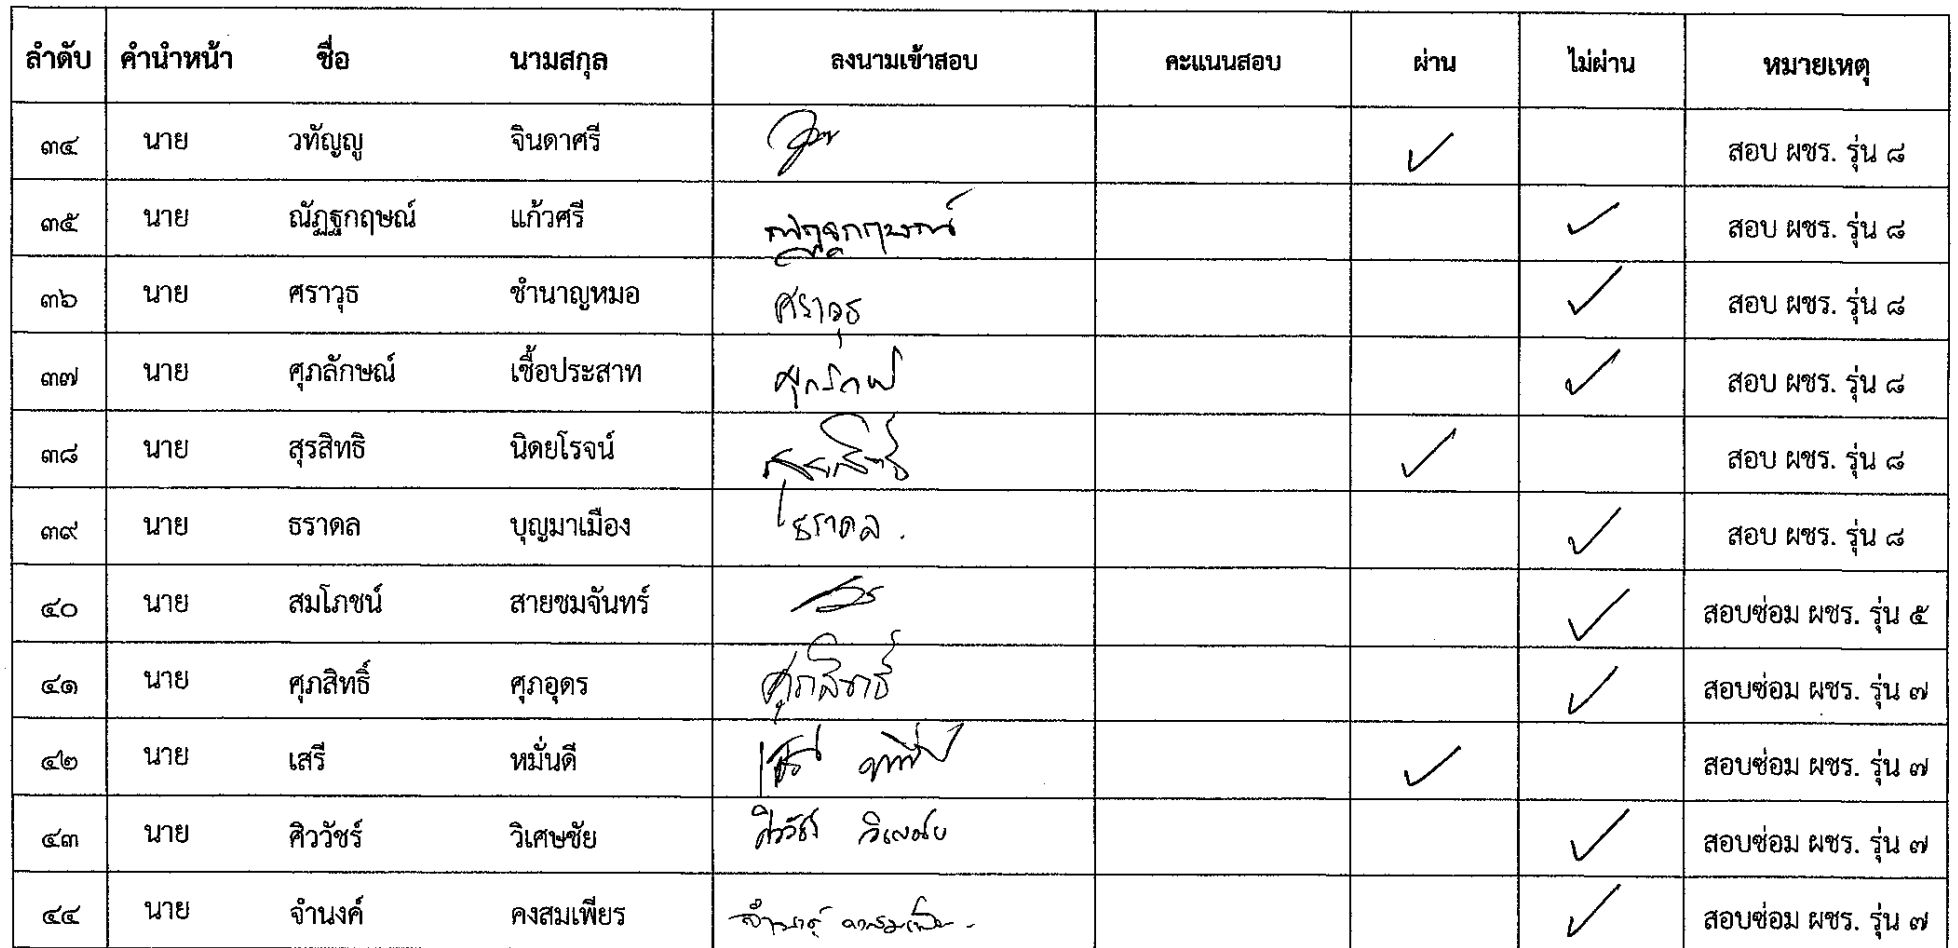 ลำดับ คำนำหน้า ชื่อ นามสกุล ลงนามเข้าสอบ คะแนนสอบ ผ่าน ไม่ผ่าน หมายเหตุ
๓๔ นาย วทัญญู จินดาศรี ✓ สอบ ผชร. รุ่น ๘
๓๕ นาย ณัฏฐกฤษณ์ แก้วศรี ณัฏฐกฤษณ์ ✓ สอบ ผชร. รุ่น ๘
๓๖ นาย ศราวุธ ชำนาญหมอ ศราวุธ ✓ สอบ ผชร. รุ่น ๘
๓๗ นาย ศุภลักษณ์ เชื้อประสาท ✓ สอบ ผชร. รุ่น ๘
๓๘ นาย สุรสิทธิ นิดยโรจน์ ✓ สอบ ผชร. รุ่น ๘
๓๙ นาย ธราดล บุญมาเมือง ธราดล . ✓ สอบ ผชร. รุ่น ๘
๔๐ นาย สมโภชน์ สายชมจันทร์ ✓ สอบซ่อม ผชร. รุ่น ๕
๔๑ นาย ศุภสิทธิ์ ศุภอุดร ศุภสิทธิ์ ✓ สอบซ่อม ผชร. รุ่น ๗
๔๒ นาย เสรี หมั่นดี ✓ สอบซ่อม ผชร. รุ่น ๗
๔๓ นาย ศิววัชร์ วิเศษชัย ศิววัชร์ วิเศษชัย ✓ สอบซ่อม ผชร. รุ่น ๗
๔๔ นาย จำนงค์ คงสมเพียร จำนงค์ คงสมเพียร ✓ สอบซ่อม ผชร. รุ่น ๗